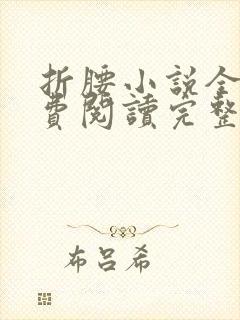 折腰小説全
費閱讀完整
布呂希